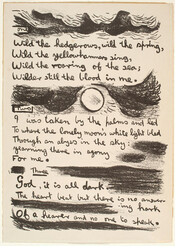 Wild the hedgerows, wild the spring,
Wild the yellowhammers sing,
Wild the roaring of the sea:
Wilder still the blood in me.
Two
I was taken by the palms and led
To where the lonely moon's white light bled
Through an abyss in the sky:
yearning there in agony
For me.
Three
God, it is all dark
The heart beat but there is no answer-
ing hark
Of a hearer and no one to speak.